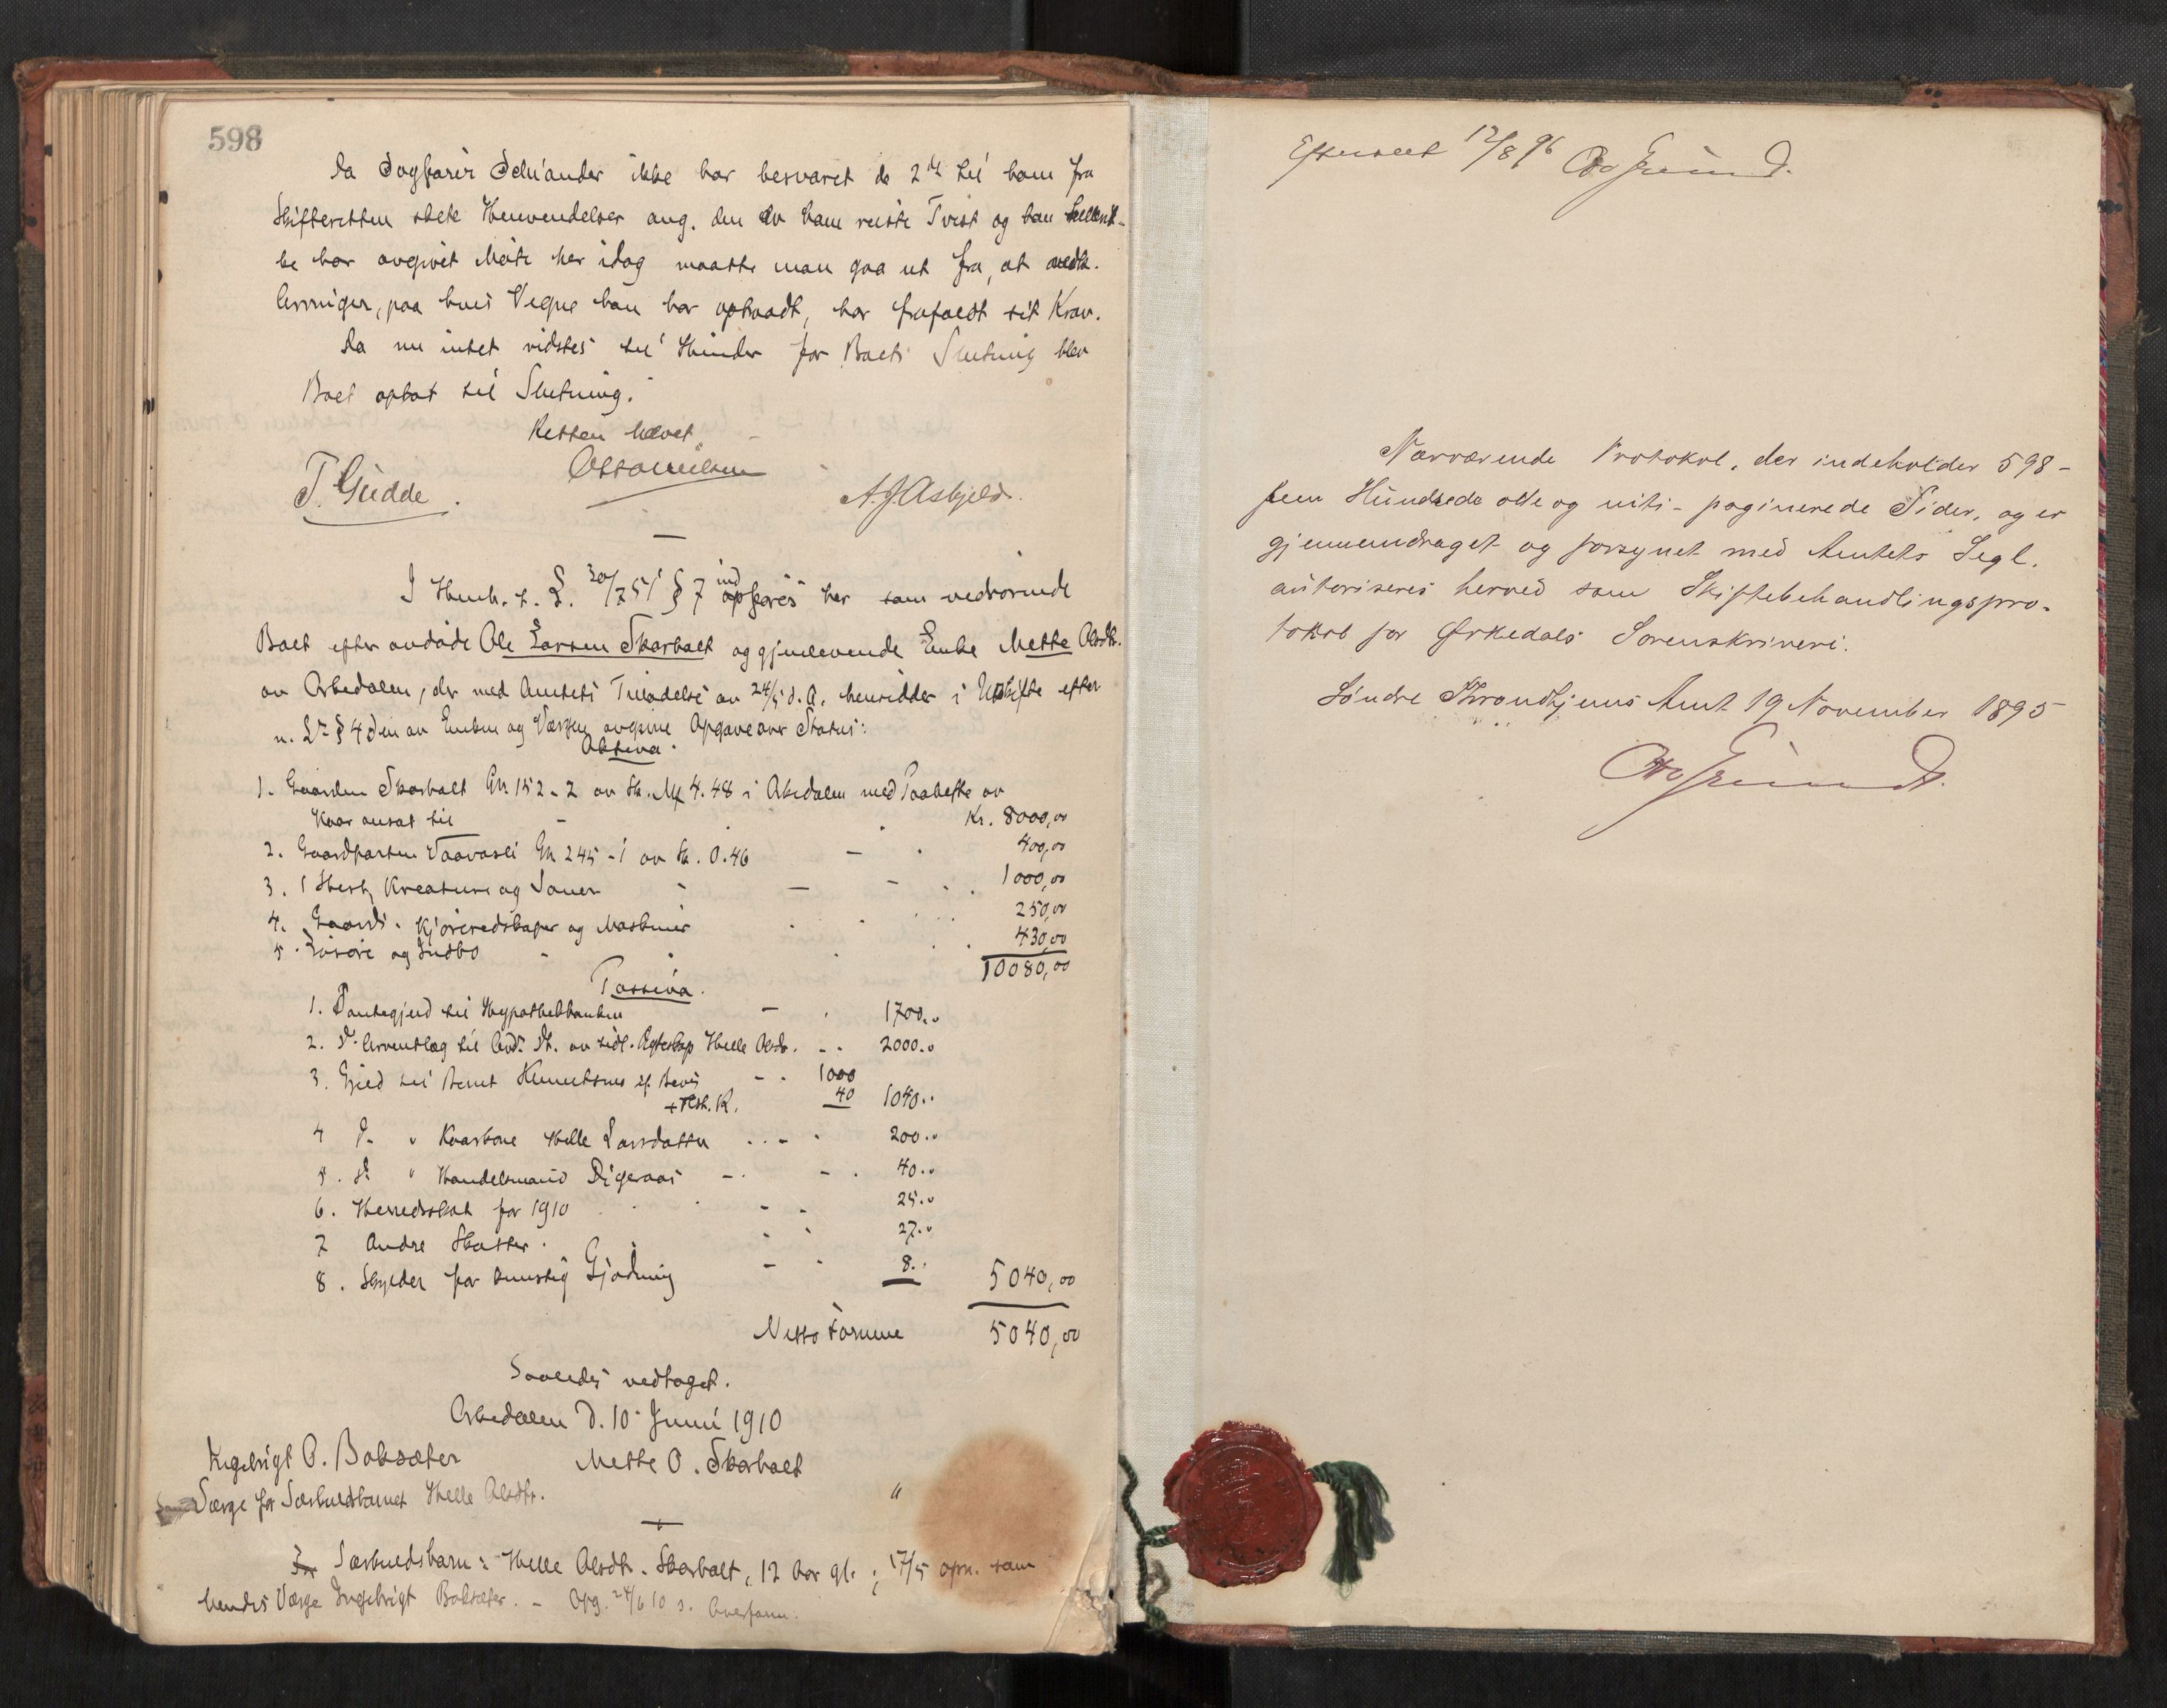 598
Da Sagfører Schiander ikke har besvaret de 2de til ham fra
Skifteretten skete Henvendelser ang. den av ham reiste Tvist og han
ke har avgivet Møte her idag maatte man gaa ut fra, at
paa hvis Vegne han har optraadt, har frafaldt sit Krav.
Da nu intet vidstes til Hinder for Boets Slutning blev
Boet optat til Slutning.
Retten hævet.
T. Gudde.
A. J. Asbjeld.
I Henh. t. L. 30/7 51 § 7 indføres her som vedrørende
Boet efter avdøde Ole Larsen Skarholt og gjenlevende Enke Mette Olsdt.
av Orkedalen, der med Amtets Tilladelse av 24/5 d. A. hensidder i Uskifte efter
n. L's § 4 den av Enken og Værgen avgivne Opgave over Status:
Aktiva.
1. Gaarden Skarholt Gn 152-2 av Sk. Mk 4.48 i Orkedalen med Paahefte av
Kaar ansat til Kr. 8000,00
2. Gaardparten Vaavasli Gn 245-1 av Sk. 0.46 400,00
3. 1 Hest, Kreaturer og Sauer 1000,00
4. Gaards- Kjøreredskaper og Maskiner 250,00
5. Løsøre og Indbo 430,00
10080,00
Passiva.
1. Pantegjeld til Hypothekbanken 1700..
2. Do Arveutlæg til Avd. Dt. av tidl. Ægteskap Helle Olsdt. 2000..
3. Gjeld til Bernt Knutsnes if. Bevis 1000
+ Rest. R. 40 1040..
4 Do " Kaarkone Helle Larsdatter 200..
5. Do " Handelsmand Digeraas 40..
6. Herredsskat for 1910 25..
7 Andre Skatter. 27..
8. Skylder for kunstig Gjødning 8.. 5040,00
Netto Formue 5040,00
Saaledes vedtaget.
Orkedalen d. 10 Juni 1910
Ingebrigt O. Boksæter Mette O. Skarholt
Som Værge for Særkuldsbarnet Helle Olsdtr. "
Særkuldsbarn: Helle Olsdt. Skarholt, 12 Aar gl.; 17/5 opn. som
hendes Værge Ingebrigt Boksæter. - Opg. 24/6 10 s. Overform.
Efterseet 12/8 96 Otto Grimsrud.
Nærværende Protokol, der indeholder 598-
fem Hundrede otte og niti- paginerede Sider, og er
gjennemdraget og forsynet med Amtets Segl,
autoriseres herved som Skiftebehandlingspro-
tokol for Ørkedals Sorenskriveri.
Søndre Throndhjems Amt 19 November 1895